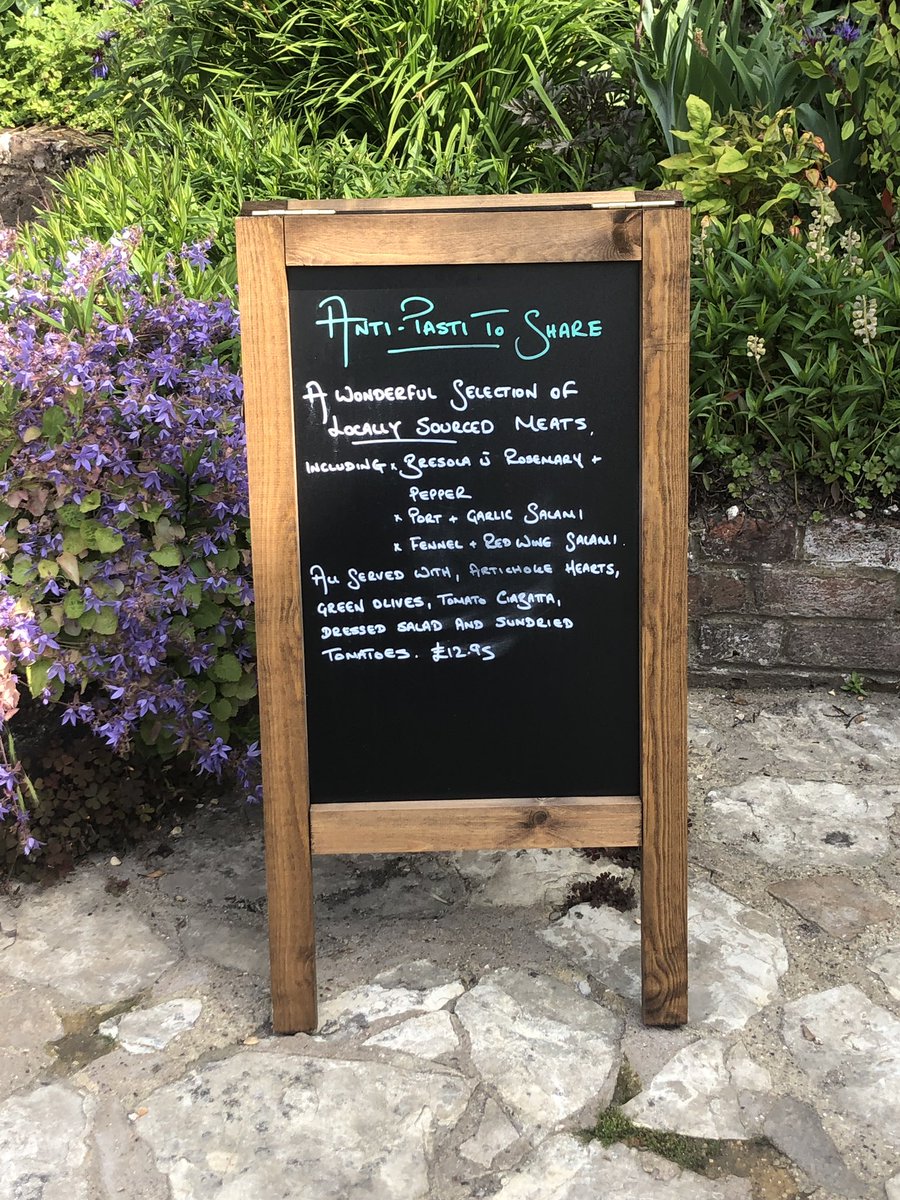 Anti-Pasti To Share
A Wonderful Selection of
Locally Sourced Meats,
including x Bresola Rosemary +
Pepper
x Port + Garlic Salami
x Fennel + Red Wine Salami.
All Served with, Artichoke Hearts,
Green Olives, Tomato Ciabatta,
Dressed Salad and Sundried
Tomatoes. £12.95